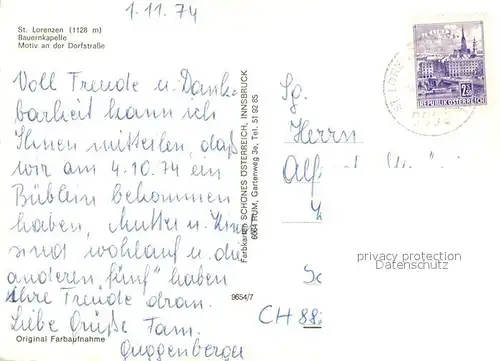 1.11.74
St. Lorenzen (1128 m)
Bauernkapelle
Motiv an der Dorfstraße
Voll Freude u. Dank-
barkeit kann ich
Ihnen mitteilen, daß
wir am 4.10.74 ein
Büblein bekommen
haben, Mutter u. Kind
sind wohlauf u. die
anderen "fünf" haben
ihre Freude dran.
Liebe Grüße Fam.
Guggenberger
Original Farbaufnahme
Farbkarten SCHÖNES ÖSTERREICH, INNSBRUCK
6064 RUM, Gartenweg 3e, Tel. 51 92 85
9654/7
REPUBLIK ÖSTERREICH
Sg.
Herrn
privacy protection
Datenschutz
CH 88